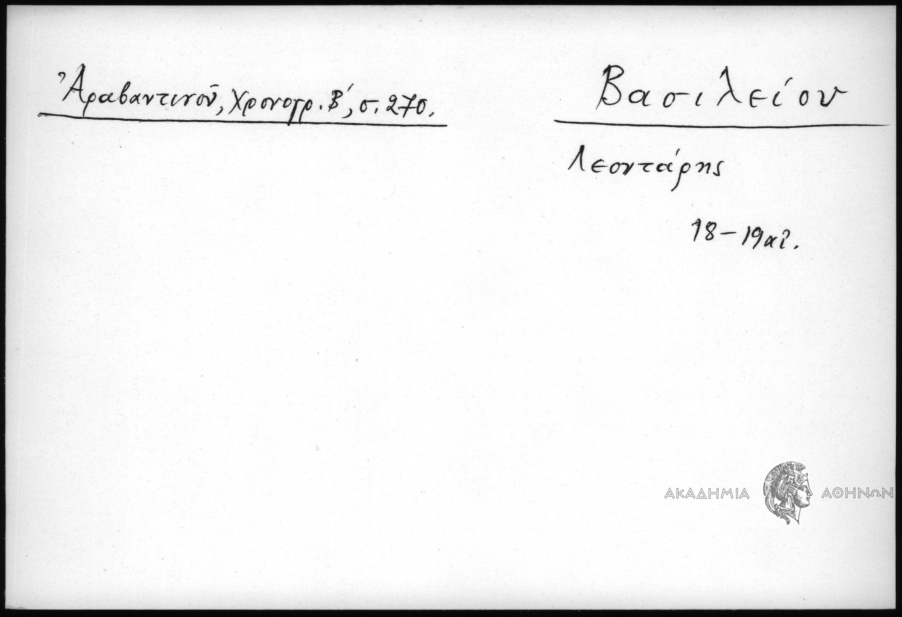 Ἀραβαντινοῦ, Χρονογρ. Β΄, σ. 270.
Βασιλείου
Λεοντάρης
18-19 αἰ.
ΑΚΑΔΗΜΙΑ ΑΘΗΝΩΝ